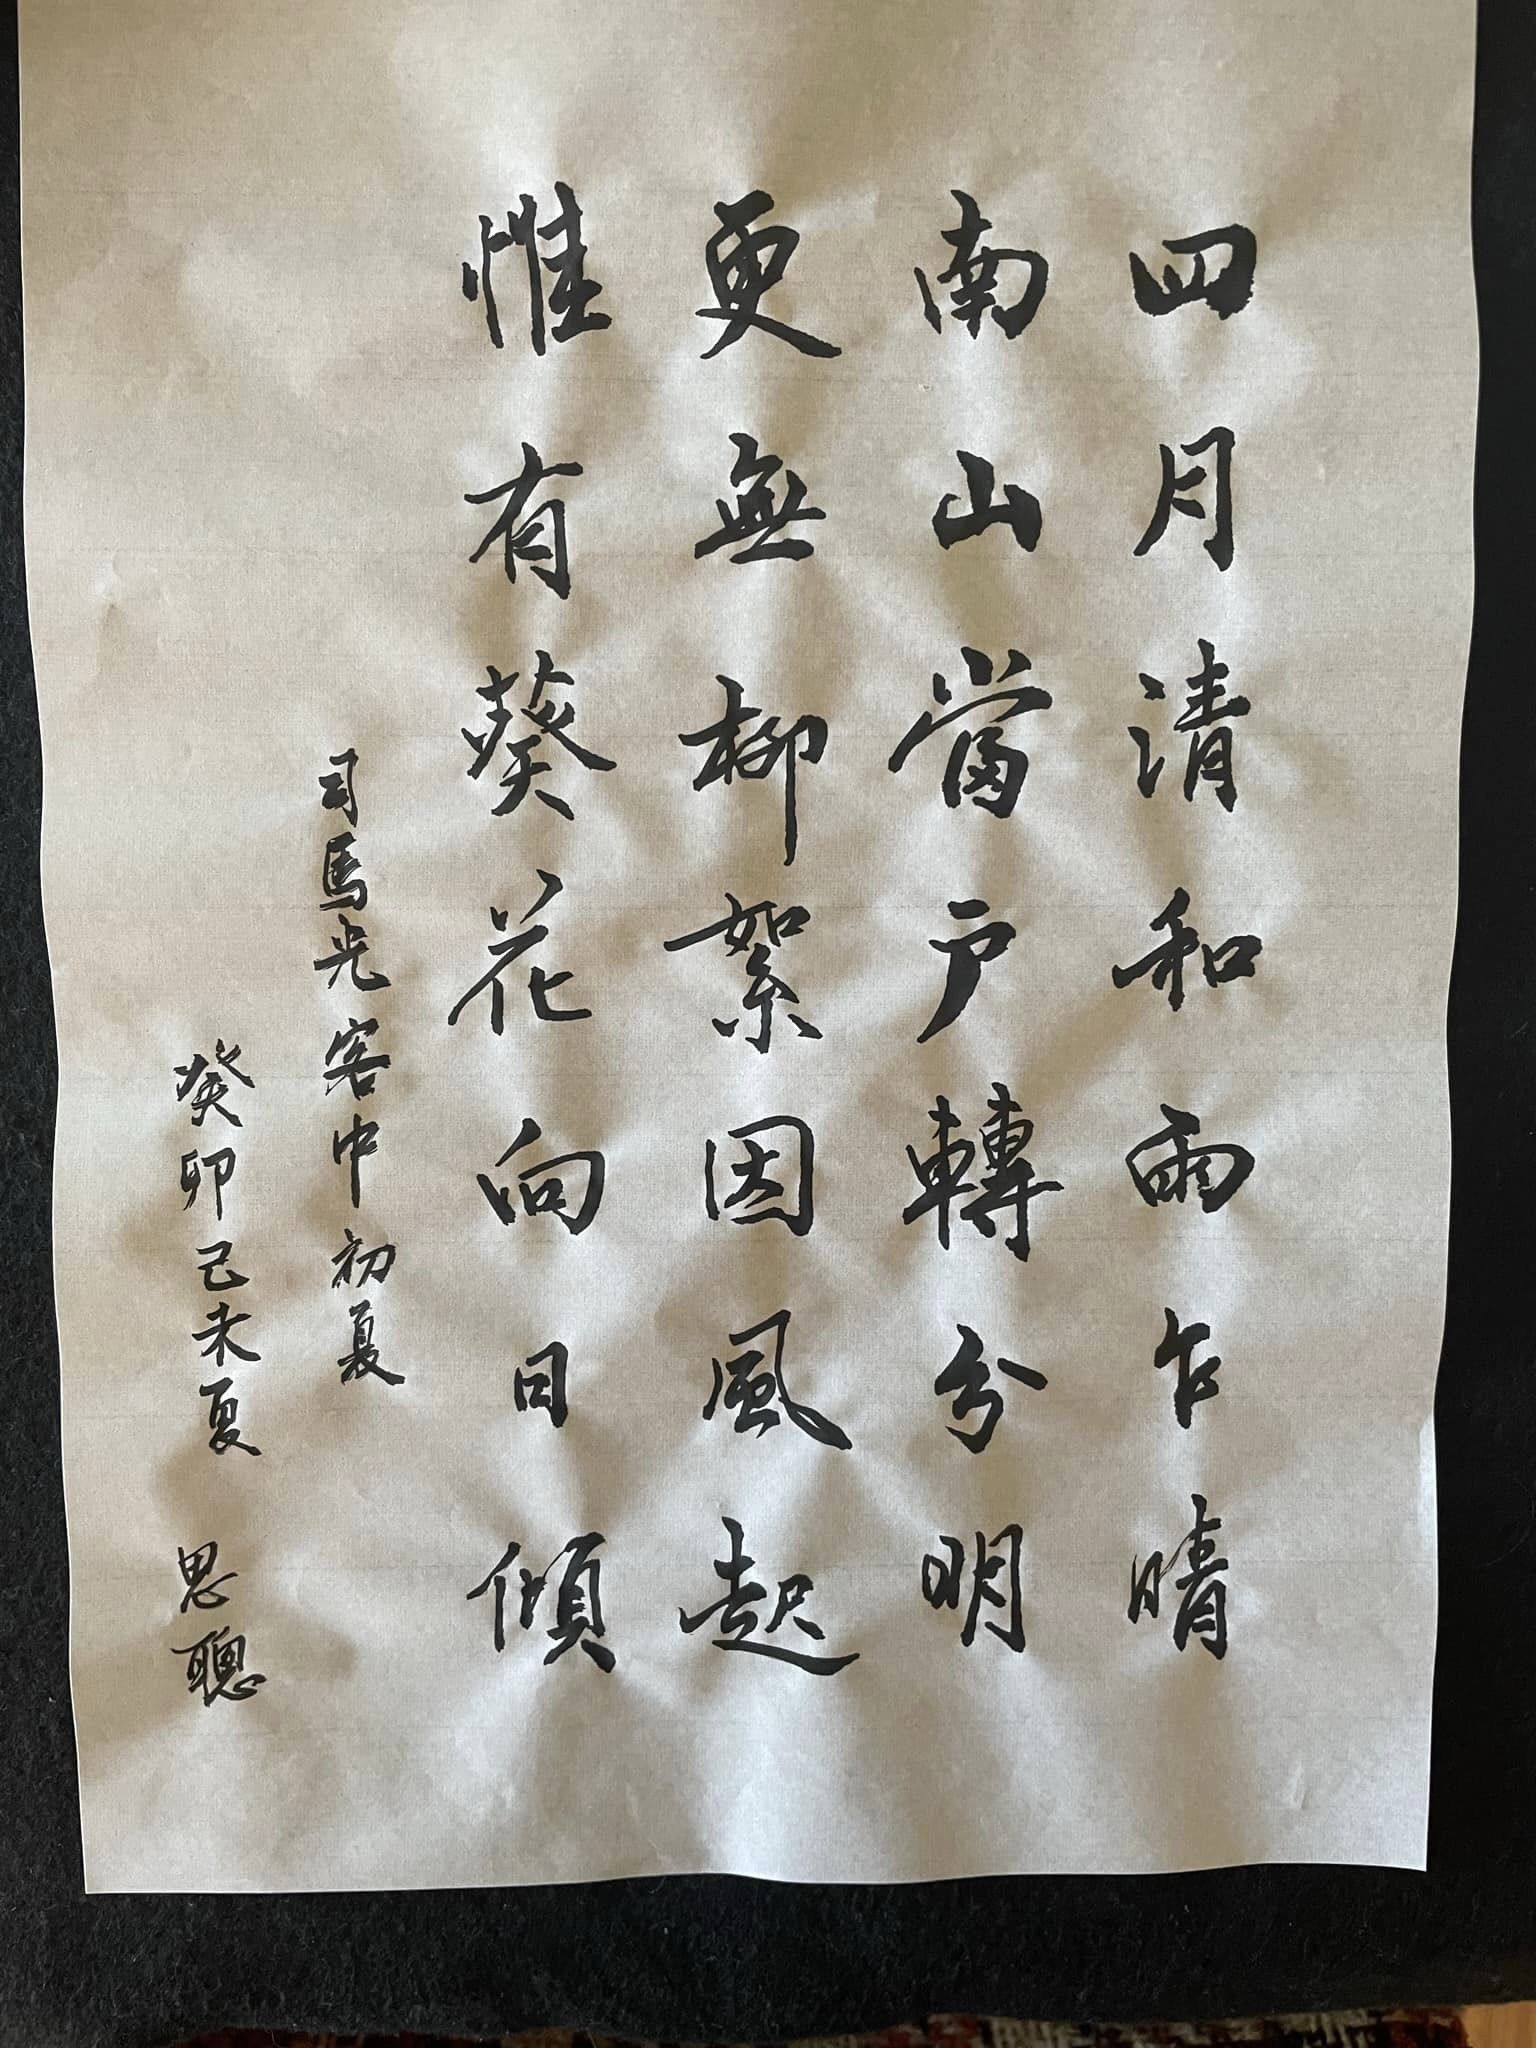 四月清和雨乍晴
南山當户轉分明
更無柳絮因風起
惟有葵花向日傾
司馬光客中初夏
癸卯己未夏 思聰